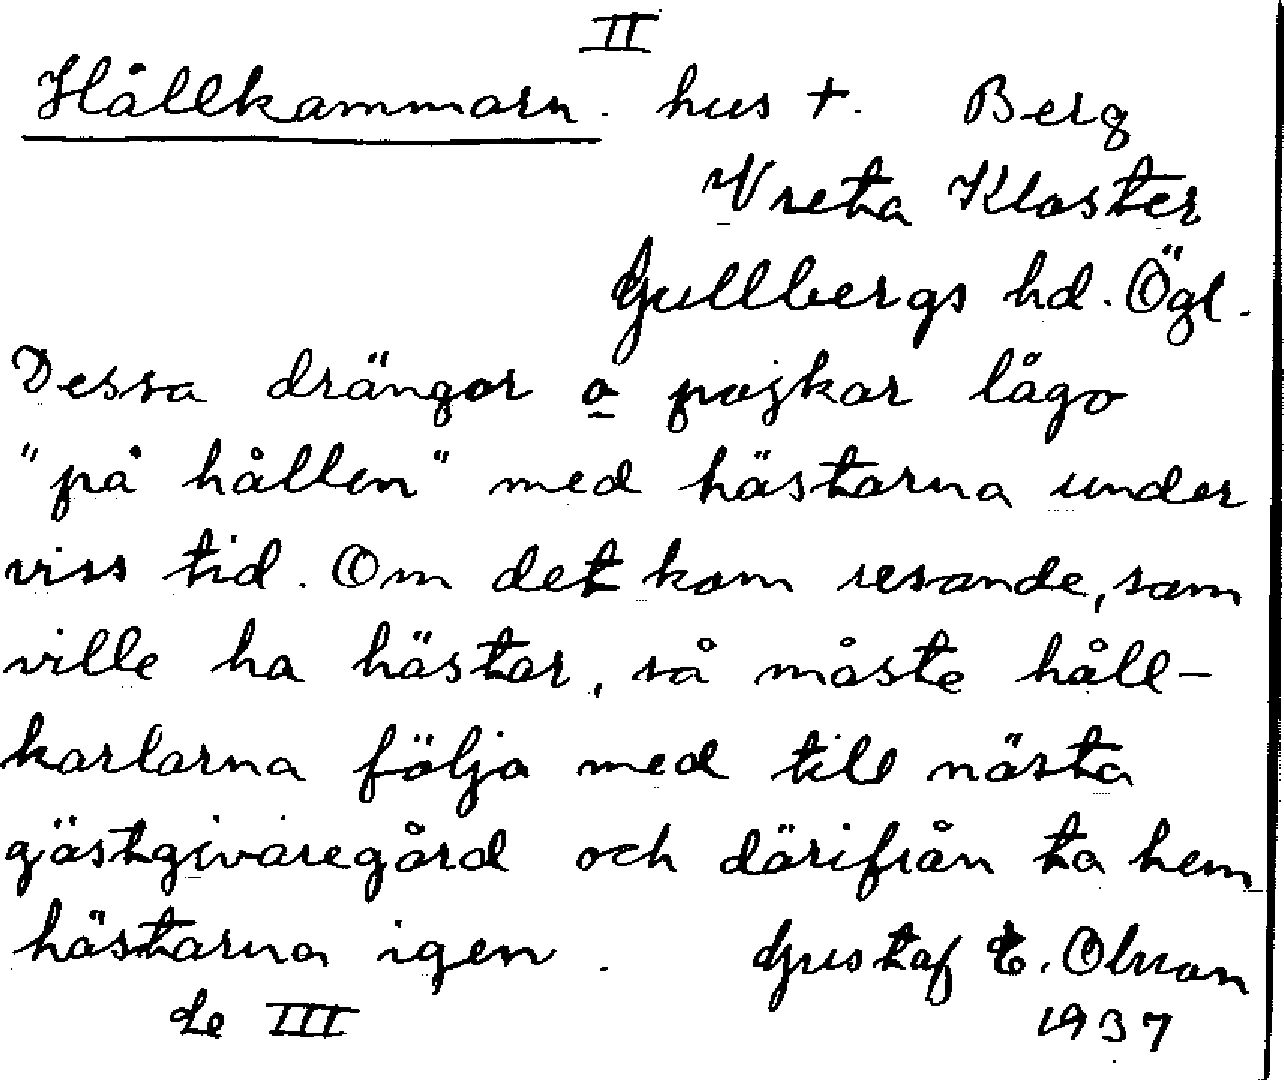 II
Hållkammarn. hus +. Berg
Vreta Kloster
Gullbergs hd. Ögl.
Dessa drängar o pojkar lågo
"på hållen" med hästarna under
viss tid. Om det kom resande, som
ville ha hästar, så måste håll-
karlarna följa med till nästa
gästgivaregård och därifrån ta hem
hästarna igen. Gustaf E. Olsson
Se III 1937